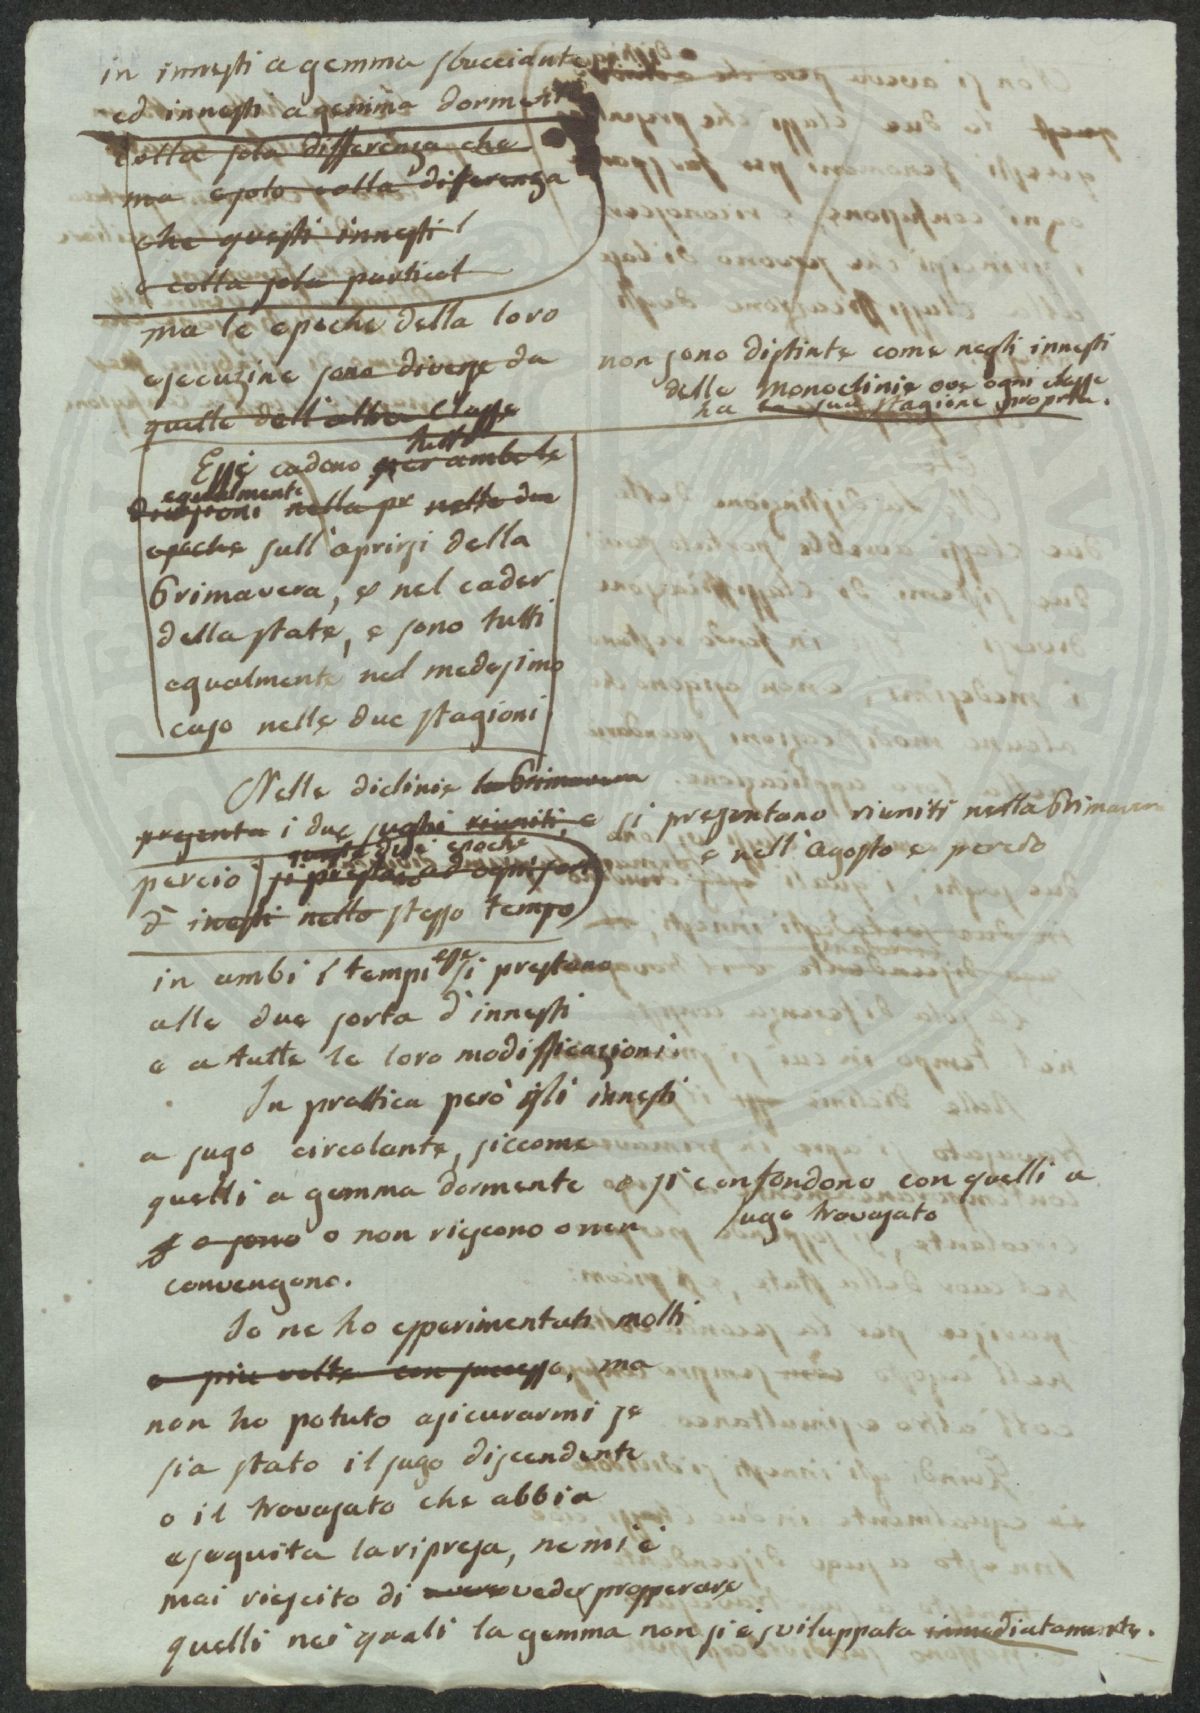 in innesti a gemma sbucciante
ed innesti a gemma dormente
colla sola differenza che
ma esolo colla diferenza
che questi innesti
e colla sola particol
ma le epoche della loro
esecuzine sono diverse da
quelle dell'altra Classe
non sono distinte come negli innesti
delle Monoclinie ove ogni classe
ha la sua stagione propria.
Esse cadono per ambe le
tutti
equalmente
divisioni nella pr nelle due
epoche sull'aprirsi della
Primavera, e nel cader
della state, e sono tutti
equalmente nel medesimo
caso nelle due stagioni
Nelle diclinie la Primavera
presenta i due sughi riuniti, e si presentano riuniti nella Primavera
e nell'agosto e perciò
perciò si prestano ad ogni sort
queste due epoche
d' inesti nello stesso tempo
in ambi i tempi esse si prestano
alle due sorta d'innesti
e a tutte le loro modifficazioni
In prattica però gli innesti
a sugo circolante, siccome
quelli a gemma dormente o si confondono con quelli a
sugo travasato
e sono o non riescono o non
convengono.
Io ne ho esperimentati molti
e piu volte con successo, ma
non ho potuto asicurarmi se
sia stato il sugo discendente
o il travasato che abbia
eseguita la ripresa, ne mi è
mai riescito di avere veder prosperare
quelli nei quali la gemma non si è sviluppata immediatamente.